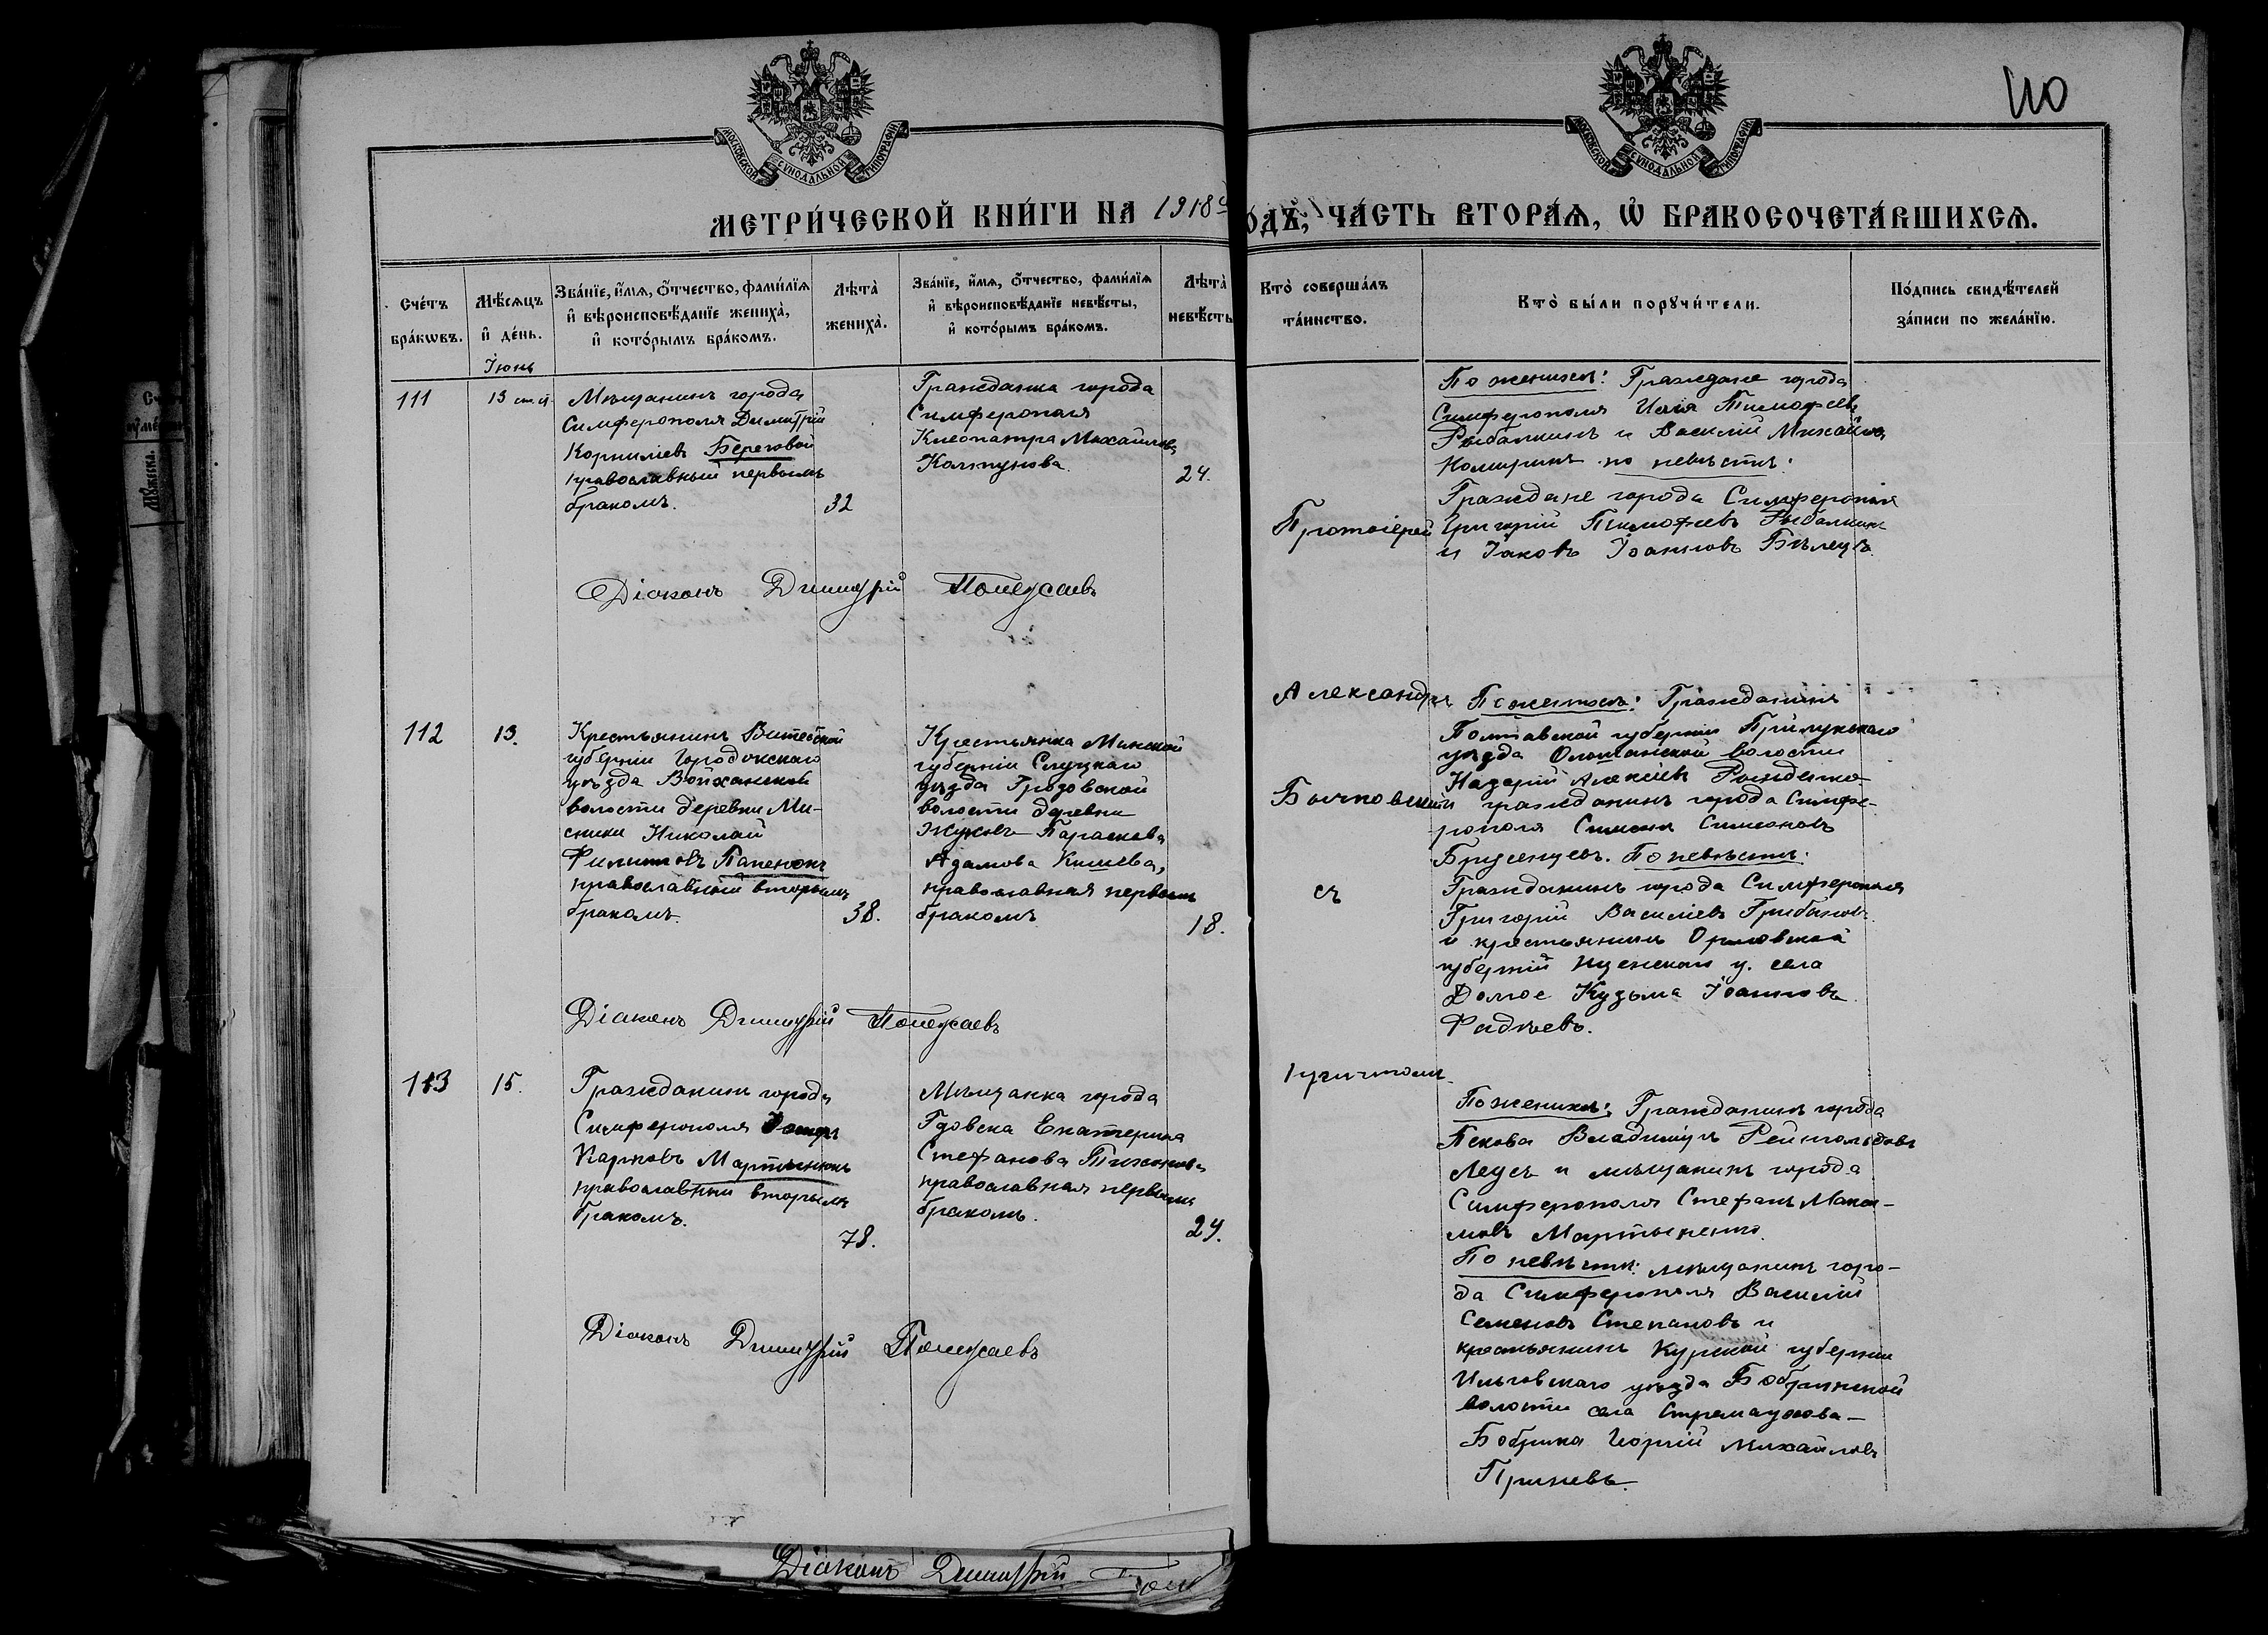 110
МОСКОВСКОЙ СУНОДАЛЬНОЙ ТИПОГРАФІИ
МОСКОВСКОЙ СУНОДАЛЬНОЙ ТИПОГРАФІИ
МЕТРИ́ЧЕСКОЙ КНИ́ГИ НА 1918й
ОДЪ, ЧА́СТЬ ВТОРА́Ѧ, Ѽ БРАКОСОЧЕТА́ВШИХСѦ.
Сче́тъ
бра́кѡвъ.
Мѣ́сѧцъ
и҆ де́нь.
Зва́нїе, и҆́мѧ, ѻ҆́тчество, фами́лїѧ
и҆ вѣроисповѣ́данїе жениха̀,
и҆ кото́рымъ бра́комъ.
Лѣта̀
жениха̀.
Зва́нїе, и҆́мѧ, ѻ҆́тчество, фами́лїѧ
и҆ вѣроисповѣ́данїе невѣ́сты,
и҆ кото́рымъ бра́комъ.
Лѣта̀
невѣ́сты
Кто̀ соверша́лъ
та́инство.
Кто̀ бы́ли порꙋчи́тели.
По́дпись свидѣ́телей
за́писи по жела́нїю.
Іюнь
111
13 ст. ст.
Мѣщанинъ города
Симферополя Димитрій
Корниліевъ Береговой
православный первымъ
бракомъ.
32
Гражданка города
Симферополя
Клеопатра Михайлова
Колпунова.
24.
По женихѣ: Граждане города
Симферополя Илія Тимофеевъ
Рыбалкинъ и Василій Михайловъ
по невѣстѣ:
Граждане города Симферополя
Григорій Тимофеевъ Рыбалкинъ
и Іаковъ Іоанновъ Бѣлецъ.
Протоіерей
Діаконъ Димитрій Полежаевъ
Александръ
112
13.
Крестьянинъ Витебской
губерніи Городокскаго
уѣзда Войханской
волости деревни Ми-
сники Николай
Филипповъ Папенокъ
православный вторымъ
бракомъ.
38.
Крестьянка Минской
губерніи Слуцкаго
уѣзда Грозовской
волости деревни
Жуковъ Параскева
Адамова Кишева,
православная первымъ
бракомъ
18.
По женихѣ: Гражданинъ
Полтавской губерніи Прилукскаго
уѣзда волости
Назарій Алексіевъ
гражданинъ города Симфе-
рополя Симеонъ Симеоновъ
По невѣстѣ:
Гражданинъ города Симферополя
Григорій Василіевъ Грибановъ
и крестьянинъ Орловской
губерній у. села
Долгое Кузьма Іоанновъ
Фадѣевъ.
Бычковскій
съ
Діаконъ Димитрій Полежаевъ
113
15.
Гражданинъ города
Симферополя
Карповъ Мартынюкъ
православный вторымъ
бракомъ.
78.
Мѣщанка города
Гдовска Екатерина
Стефанова Тихонова
православная первымъ
бракомъ.
24.
причтомъ.
По женихѣ: Гражданинъ города
Пскова Владиміръ Рейнгольдовъ
Ледсъ и мѣщанинъ города
Симферополя Стефанъ Макси-
мовъ Мартыненко.
По невѣстѣ: мѣщанинъ горо-
да Симферополя Василій
Семеновъ Степановъ и
крестьянинъ Курской губерніи
Льговскаго уѣзда Бобрикской
волости села
Бобрика Георгій Михайловъ
Гриневъ.
Діаконъ Димитрій Полежаевъ
Діаконъ Димитрій